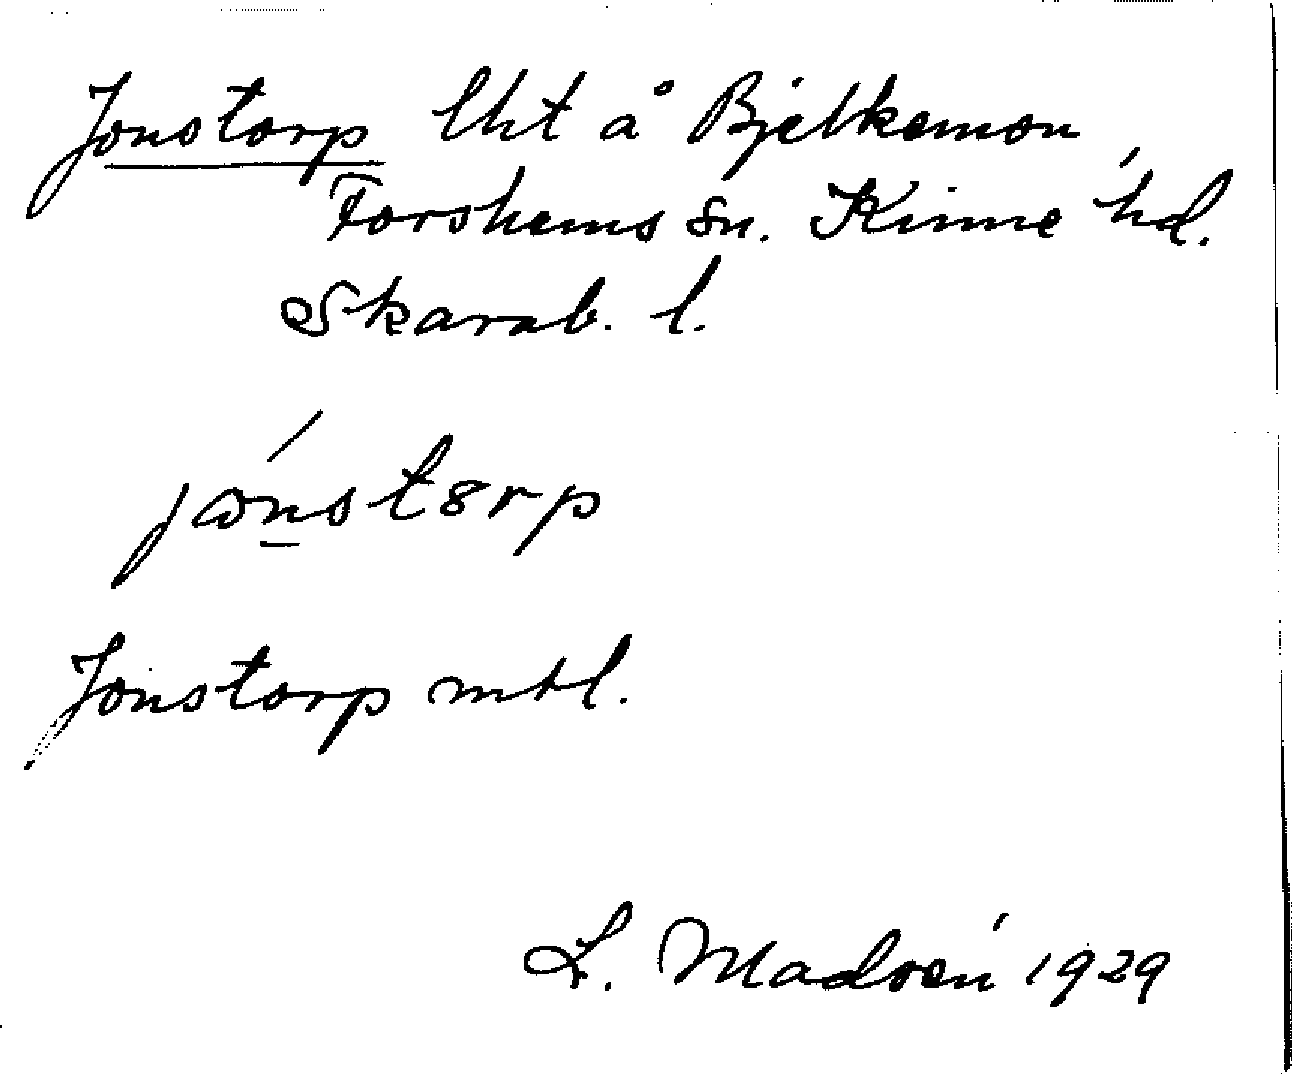 Jonstorp lht å Bjelkemon
Forshems sn. Kinne hd.
Skarab. l.
jωnstȣrp
Jonstorp mtl.
L. Madsén 1929